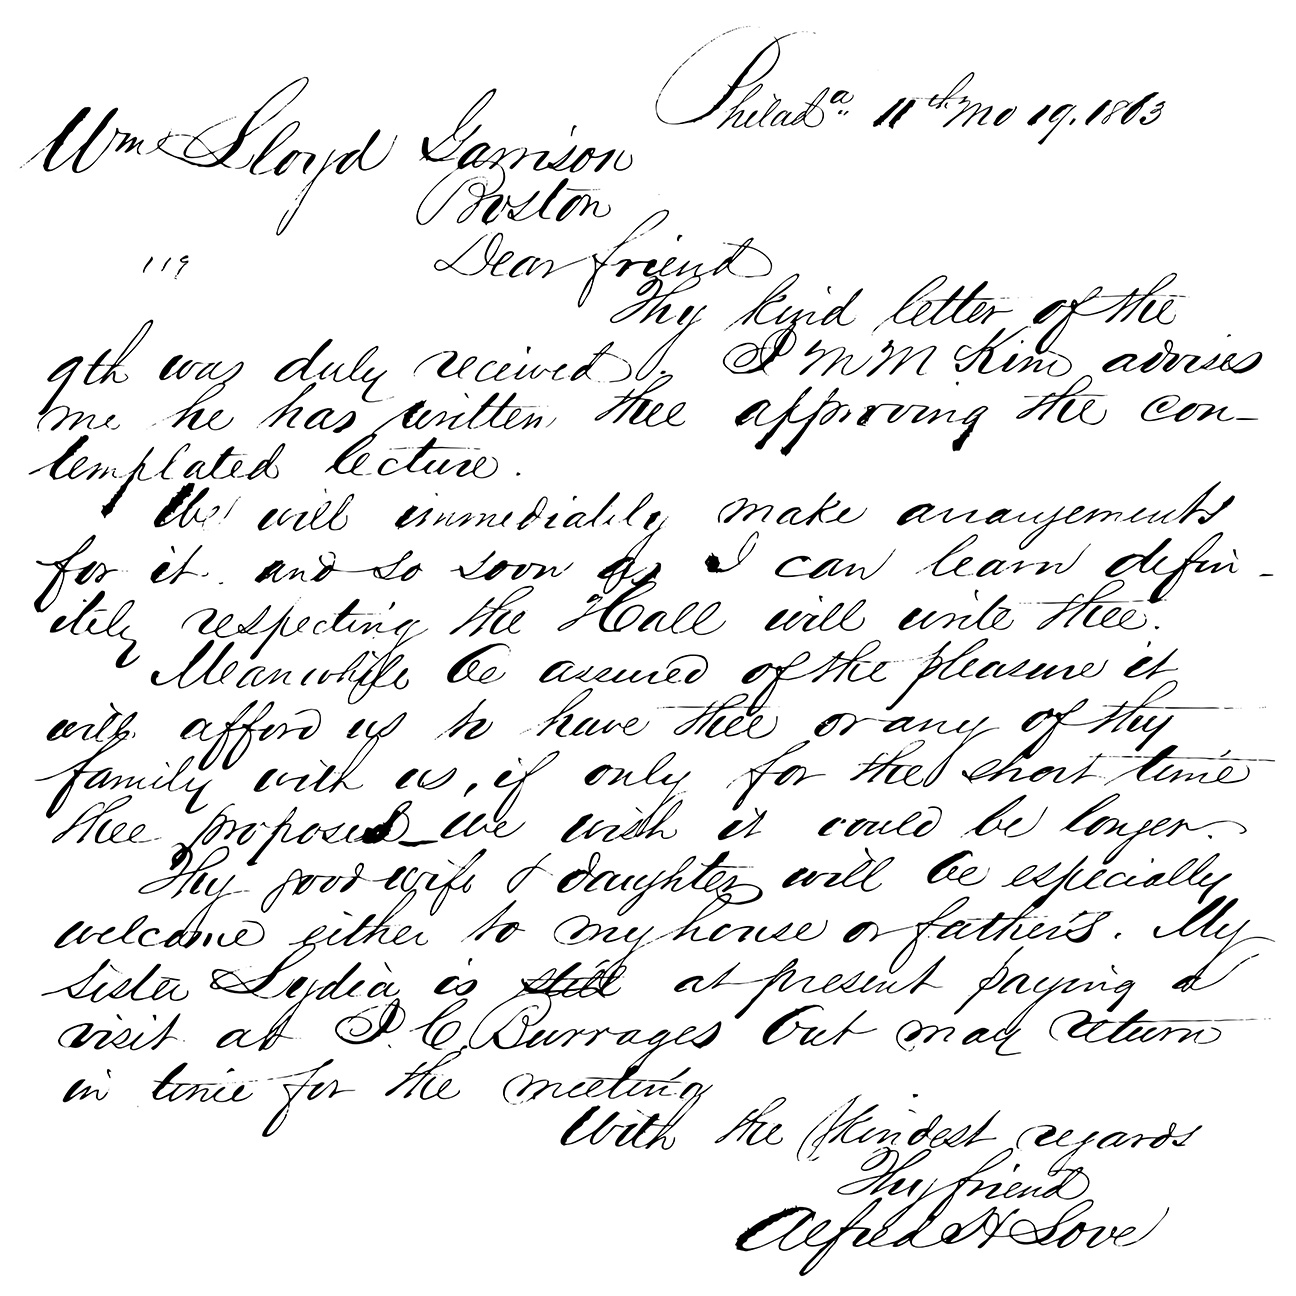 Philada. 11th Mo 19. 1863
Wm Lloyd Garrison
Boston
Dear friend
119
Thy kind letter of the
9th was duly received. J M M Kim advises
me he has written thee approving the con-
templated lecture.
We will immediately make arrangements
for it. and so soon as I can learn defin-
itely respecting the Hall will write thee.
Meanwhile be assured of the pleasure it
will afford us to have thee or any of thy
family with us, if only for the short time
thee proposed - we wish it could be longer.
Thy good wife & daughter will be especially
welcome either to my house or father's. My
sister Lydia is still at present paying a
visit at J. C. Burrages but may return
in time for the meeting
With the kindest regards
Thy friend
Alfred H Love